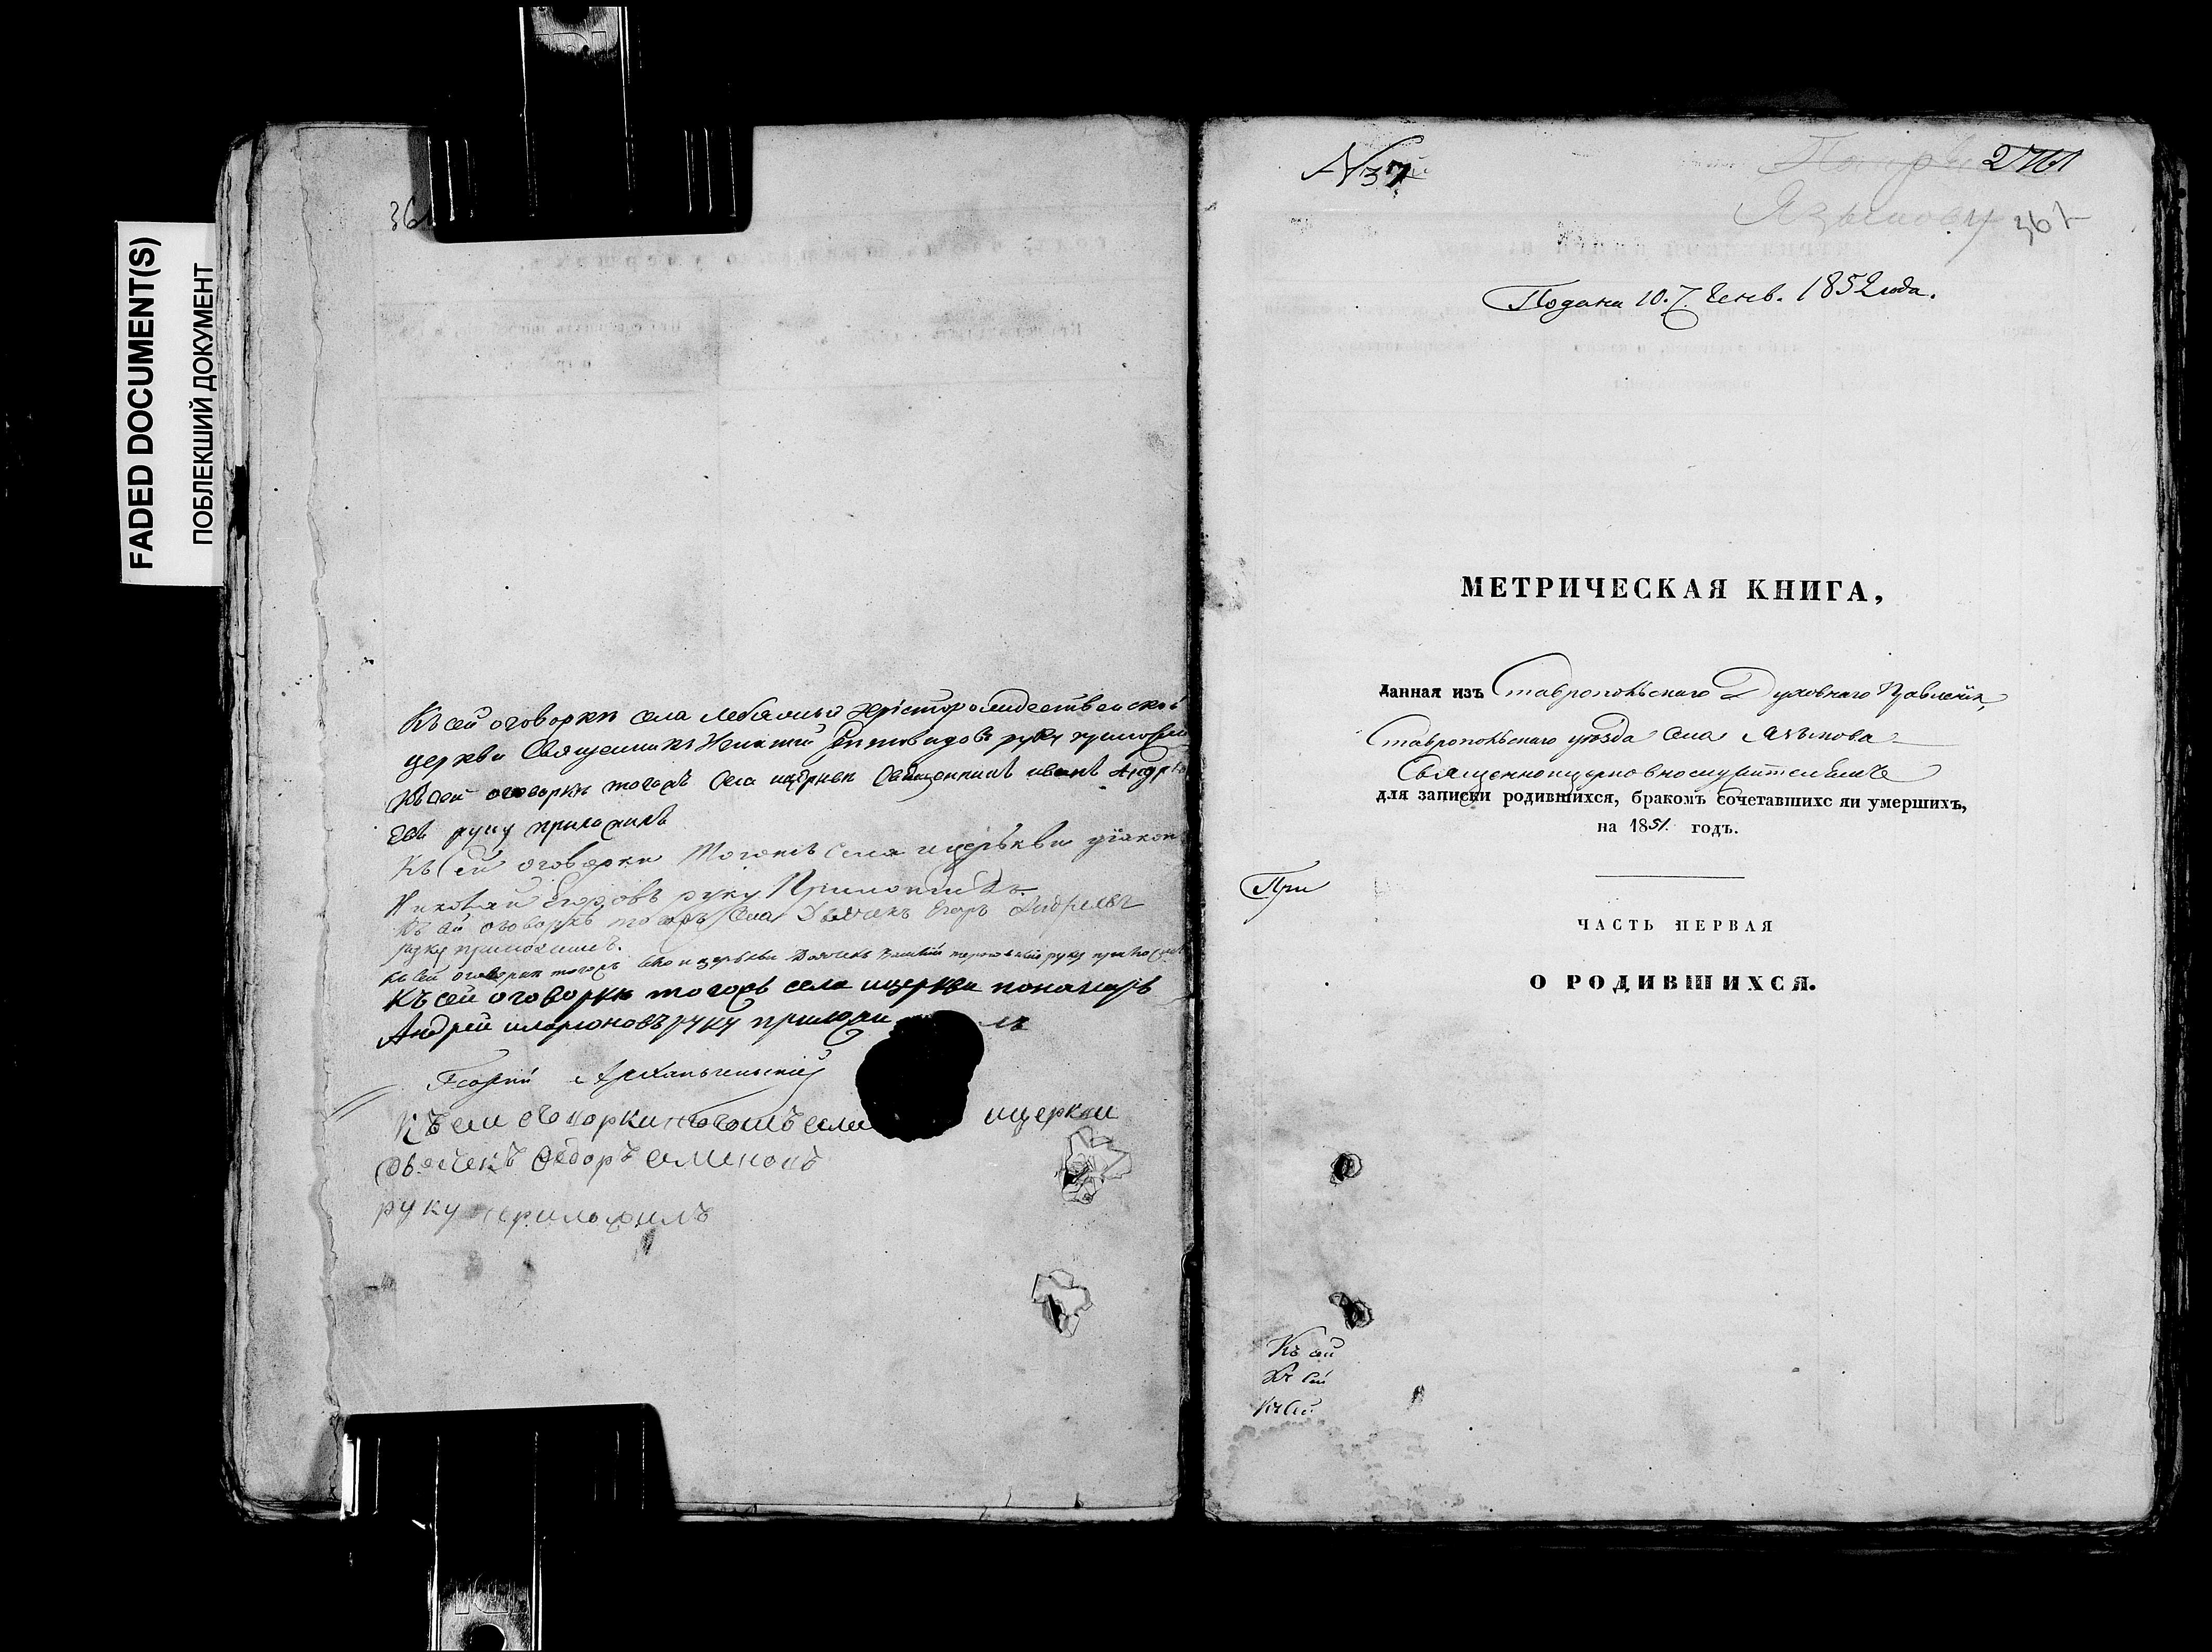 FADED DOCUMENT(S)
ПОБЛЕКШИЙ ДОКУМЕНТ
36
Къ сей оговорки села Христорождественской
церкви Священникъ руку приложилъ
Къ сей оговоркѣ тогожъ села церкви Священникъ иванъ Андрѣ
евъ руку приложилъ
Къ сей оговорки тогожъ села и церькви діаконъ
Николай Егоровъ руку Приложилъ
Къ сей оговоркѣ тогожъ села Дьячекъ Егоръ Андреевъ
руку приложилъ.
Къ сей оговорки тогожъ села и церькви Дьячекъ руку приложилъ
Къ сей оговорки тогожъ села ицеркви пономарь
Андрей иларионовъ руку приложи лъ
Георгій Архангельскій
Къ сеи оговорки тогожъ села ицеркви
дьячекъ Федоръ Семеновъ
руку приложилъ
№ 37
Языкову 367
Подана 10. Генв. 1852 года.
МЕТРИЧЕСКАЯ КНИГА,
данная изъ Ставропольскаго Духовнаго Правленія,
Ставропольскаго уѣзда села Языкова
Священноцерковнослужителямъ
для записки родившихся, бракомъ сочетавшихс яи умершихъ,
на 1851. годъ.
При
ЧАСТЬ ПЕРВАЯ
О РОДИВШИХСЯ.
Къ сей
Къ сей
Къ сей